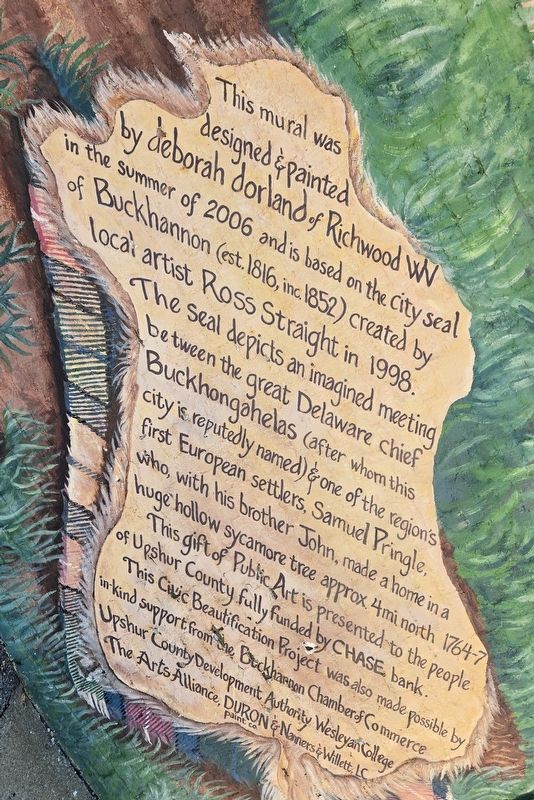 This mural was
designed & painted
by deborah dorland of Richwood WV
in the summer of 2006 and is based on the city seal
of Buckhannon (est. 1816, inc. 1852) created by
local artist Ross Straight in 1998.
The seal depicts an imagined meeting
between the great Delaware chief
Buckhongahelas (after whom this
city is reputedly named) & one of the region's
first European settlers, Samuel Pringle,
who, with his brother John, made a home in a
huge hollow sycamore tree approx. 4mi north 1764-7
This gift of Public Art is presented to the people
of Upshur County fully funded by CHASE bank.
This Civic Beautification Project was also made possible by
in-kind support from the Buckhannon Chamber of Commerce
Upshur County Development Authority Wesleyan College
The Arts Alliance, DURON & Nanners & Willett, LC
paint co.